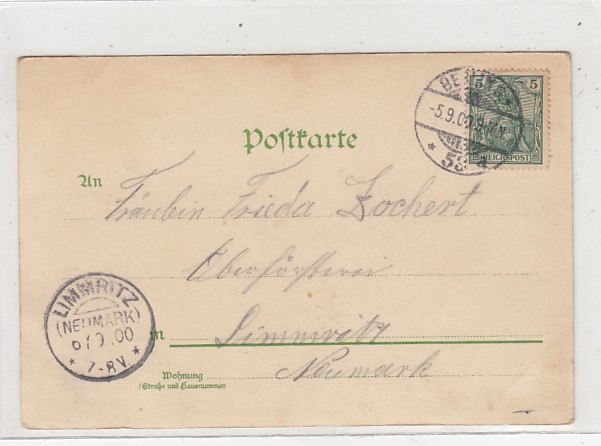 BERLIN
5 5
-5.9.00.
* 53 a
REICHSPOST
Postkarte
An
Fräulein Frieda Zochert
Oberförsterei
in Limmritz
Neumark
LIMMRITZ
(NEUMARK)
6/9.00
* 7-8V. *
Wohnung
(Straße und Hausnummer)